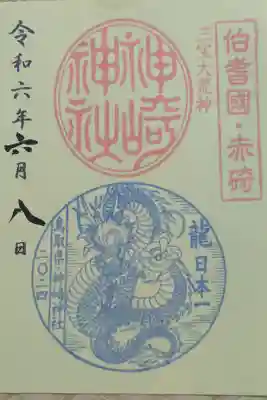 伯耆國・赤碕
三宝大荒神
神崎神社
龍 日本一
鳥取県・神崎神社
二〇二四
令和六年六月八日